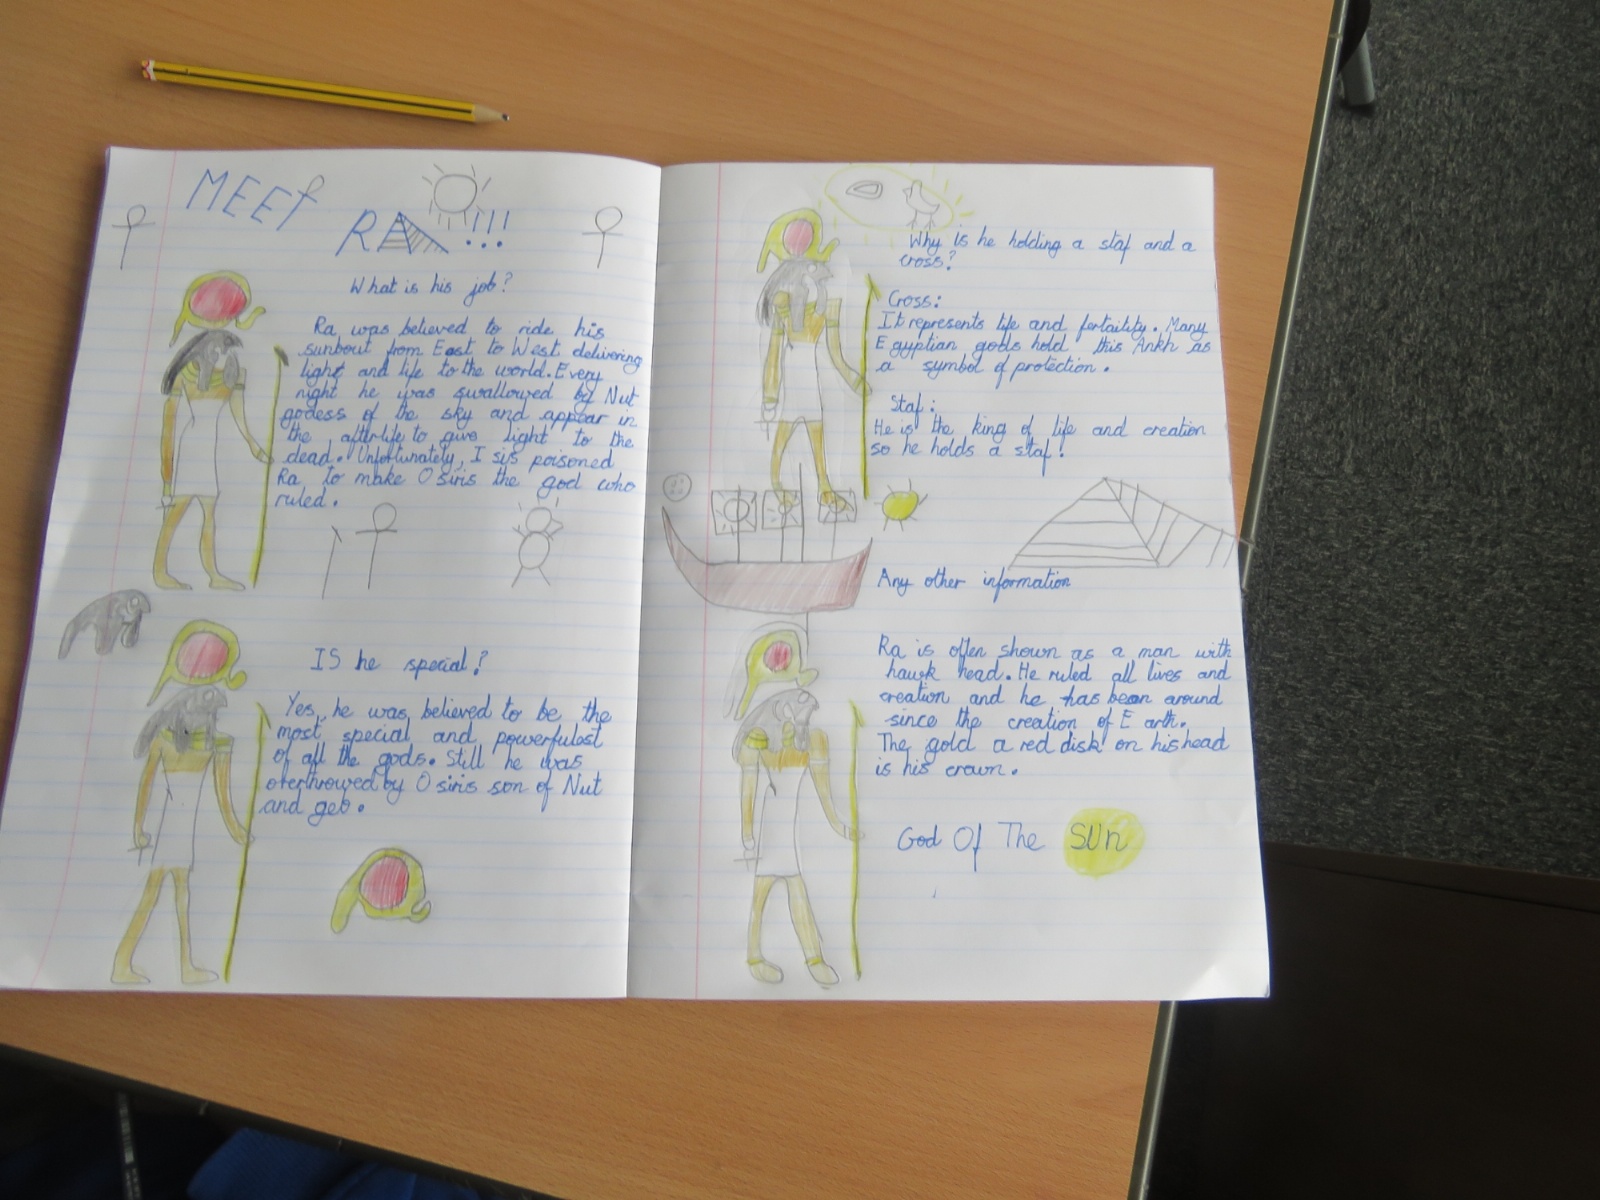 MEET
RA !!!
What is his job?
Ra was believed to ride his
sunbout from East to West delivering
light and life to the world. Every
night he was swallowed by Nut
godess of the sky and appear in
the afterlife to give light to the
dead. Unfortunately, Isis poisoned
Ra to make Osiris the god who
ruled.
IS he special?
Yes, he was believed to be the
most special and powerfulest
of all the gods. Still he was
overthrowed by Osiris son of Nut
and geb.
Why is he holding a staf and a
cross?
Cross:
It represents life and fertaitity. Many
Egyptian gods hold this Ankh as
a symbol of protection.
Staf:
He is the king of life and creation
so he holds a staf!
Any other information
Ra is often shown as a man with
hawk head. He ruled all lives and
creation and he has been around
since the creation of Earth.
The gold a red disk on his head
is his crown.
God Of The SUn